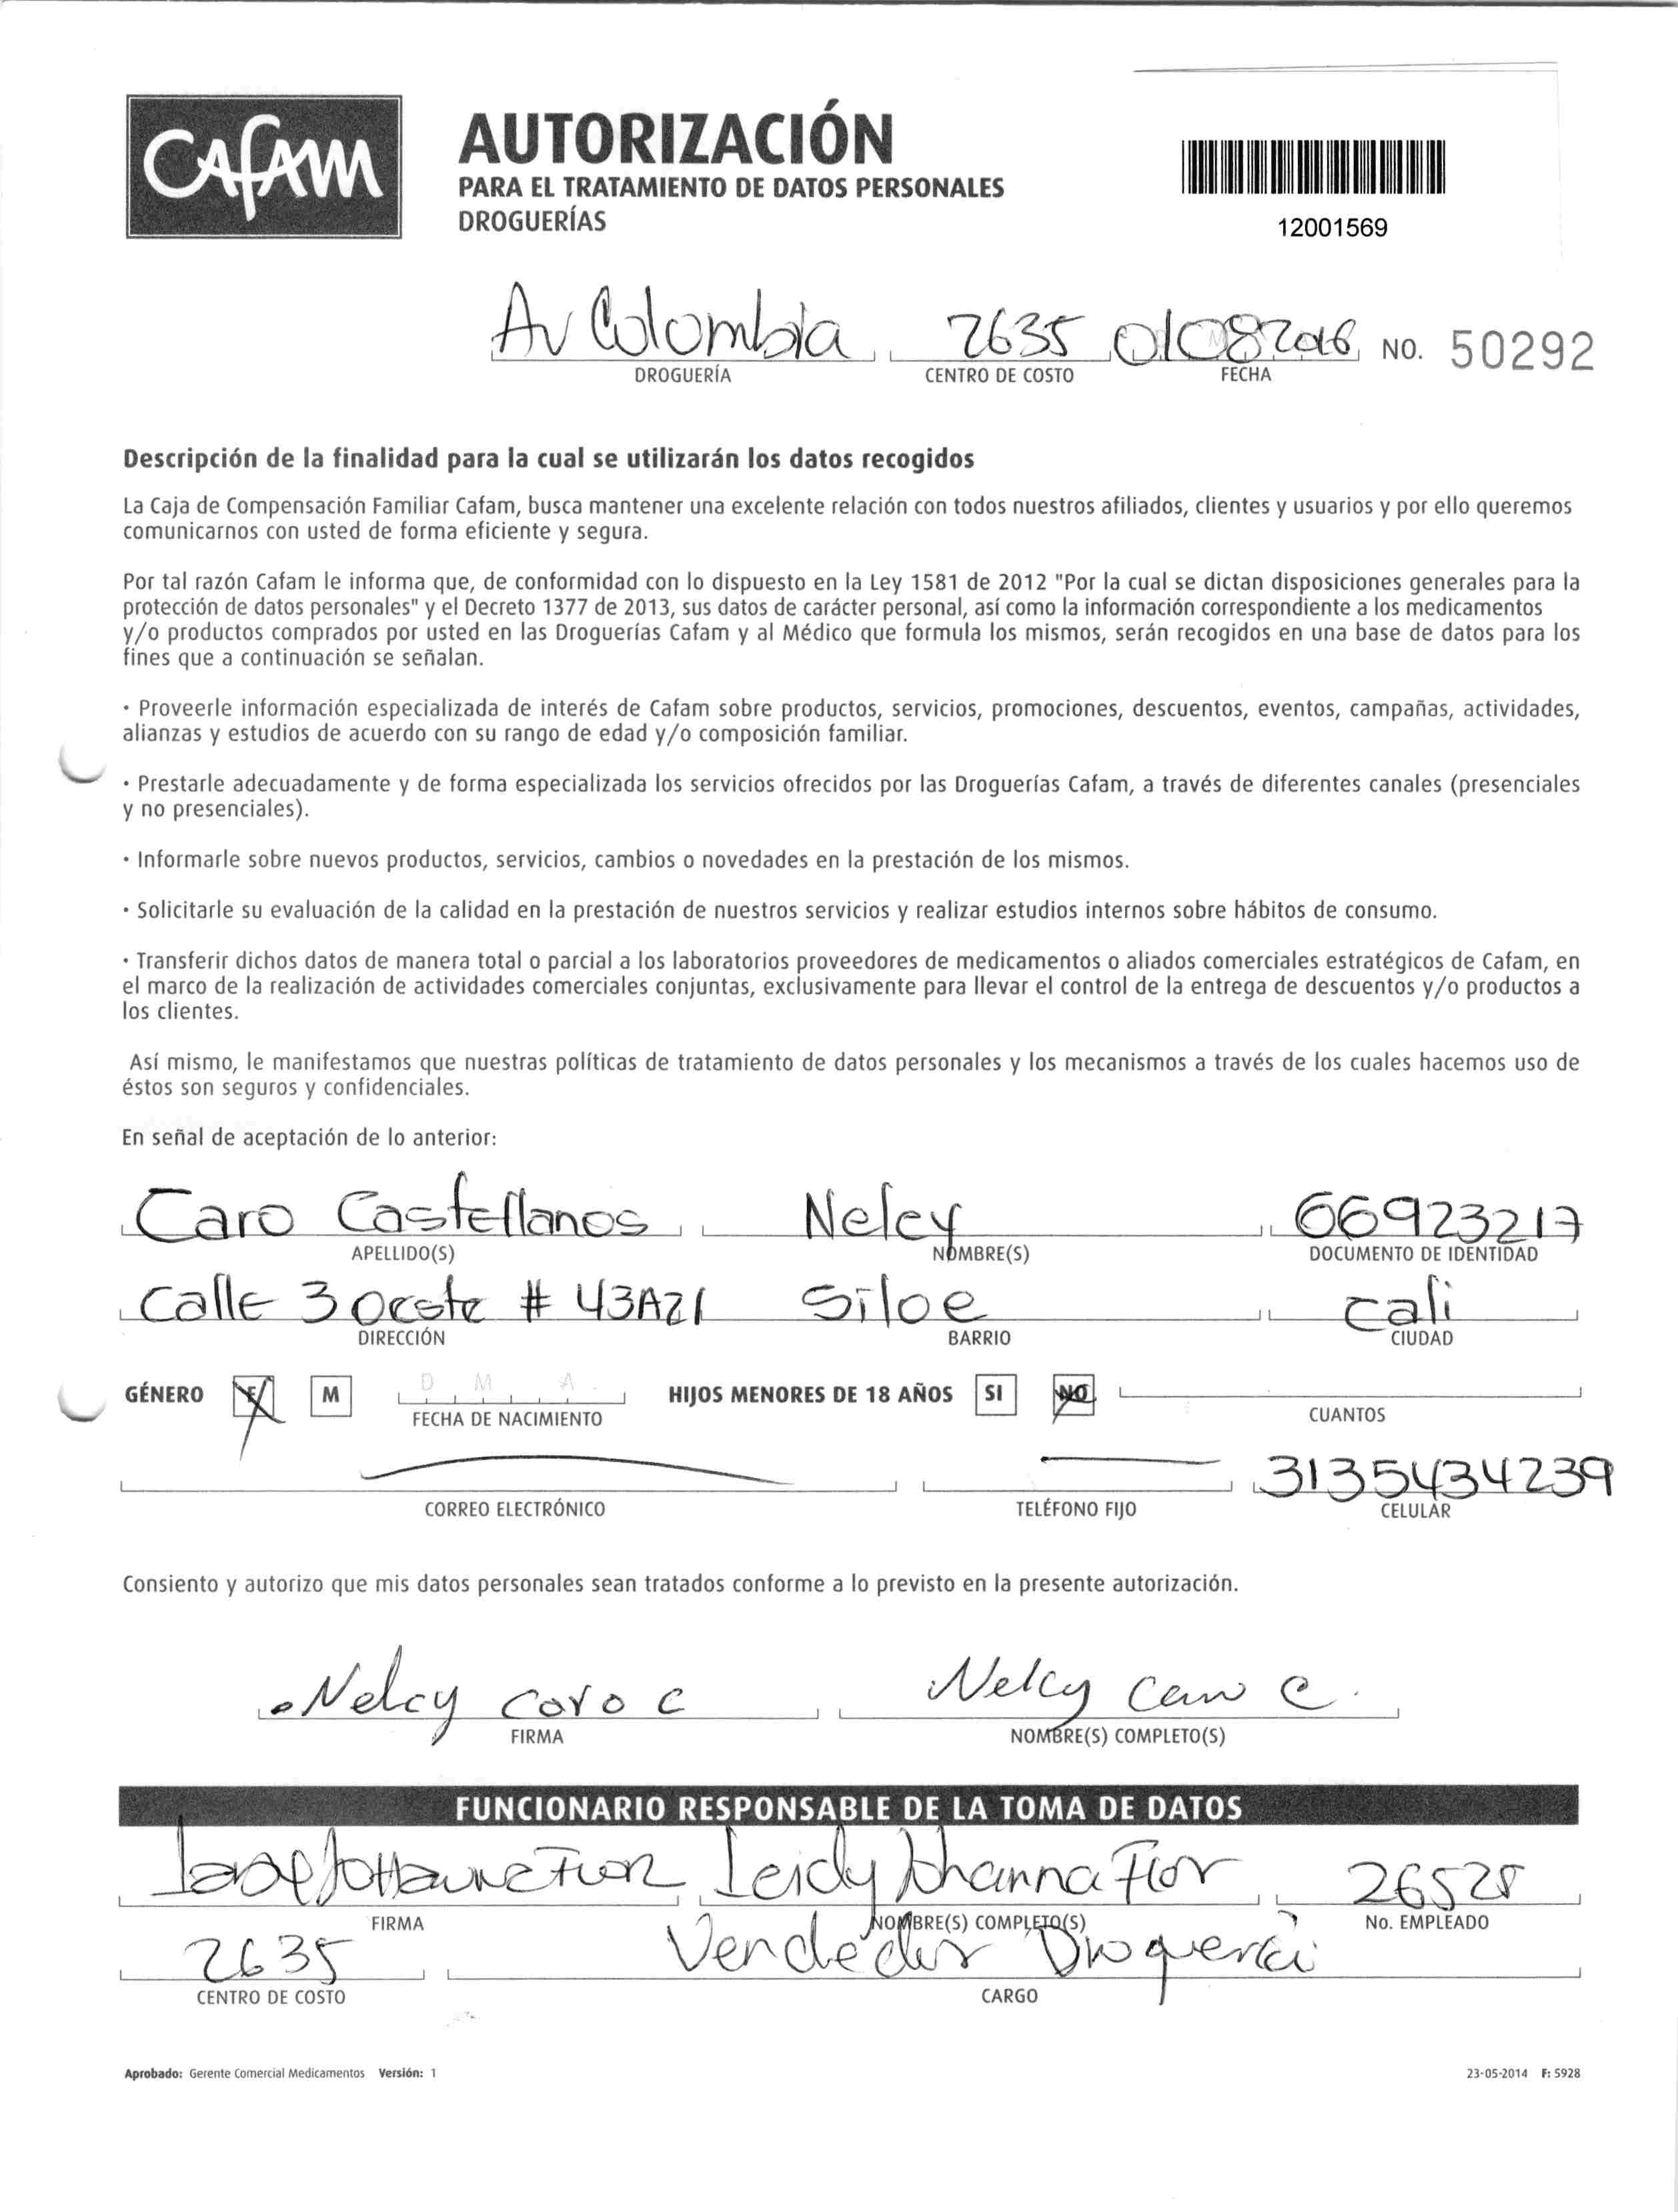 CAFAM
AUTORIZACIÓN
PARA EL TRATAMIENTO DE DATOS PERSONALES
DROGUERÍAS
12001569
Av Colombia 2635 01082016 NO. 50292
DROGUERÍA CENTRO DE COSTO FECHA
Descripción de la finalidad para la cual se utilizarán los datos recogidos
La Caja de Compensación Familiar Cafam, busca mantener una excelente relación con todos nuestros afiliados, clientes y usuarios y por ello queremos
comunicarnos con usted de forma eficiente y segura.
Por tal razón Cafam le informa que, de conformidad con lo dispuesto en la Ley 1581 de 2012 "Por la cual se dictan disposiciones generales para la
protección de datos personales" y el Decreto 1377 de 2013, sus datos de carácter personal, así como la información correspondiente a los medicamentos
y/o productos comprados por usted en las Droguerías Cafam y al Médico que formula los mismos, serán recogidos en una base de datos para los
fines que a continuación se señalan.
· Proveerle información especializada de interés de Cafam sobre productos, servicios, promociones, descuentos, eventos, campañas, actividades,
alianzas y estudios de acuerdo con su rango de edad y/o composición familiar.
· Prestarle adecuadamente y de forma especializada los servicios ofrecidos por las Droguerías Cafam, a través de diferentes canales (presenciales
y no presenciales).
· Informarle sobre nuevos productos, servicios, cambios o novedades en la prestación de los mismos.
· Solicitarle su evaluación de la calidad en la prestación de nuestros servicios y realizar estudios internos sobre hábitos de consumo.
· Transferir dichos datos de manera total o parcial a los laboratorios proveedores de medicamentos o aliados comerciales estratégicos de Cafam, en
el marco de la realización de actividades comerciales conjuntas, exclusivamente para llevar el control de la entrega de descuentos y/o productos a
los clientes.
Así mismo, le manifestamos que nuestras políticas de tratamiento de datos personales y los mecanismos a través de los cuales hacemos uso de
éstos son seguros y confidenciales.
En señal de aceptación de lo anterior:
Caro Castellanos Nelcy 66923217
APELLIDO(S) NOMBRE(S) DOCUMENTO DE IDENTIDAD
Calle 3 Oeste # 43A21 Siloe Cali
DIRECCIÓN BARRIO CIUDAD
GÉNERO F M D M A HIJOS MENORES DE 18 AÑOS SI NO
FECHA DE NACIMIENTO CUANTOS
3135434239
CORREO ELECTRÓNICO TELÉFONO FIJO CELULAR
Consiento y autorizo que mis datos personales sean tratados conforme a lo previsto en la presente autorización.
Nelcy Caro C Nelcy Caro C.
FIRMA NOMBRE(S) COMPLETO(S)
FUNCIONARIO RESPONSABLE DE LA TOMA DE DATOS
Leidy Johanna Flor 26528
FIRMA NOMBRE(S) COMPLETO(S) No. EMPLEADO
2635 Vendedor Drogueria
CENTRO DE COSTO CARGO
Aprobado: Gerente Comercial Medicamentos Versión: 1 23-05-2014 F: 5928